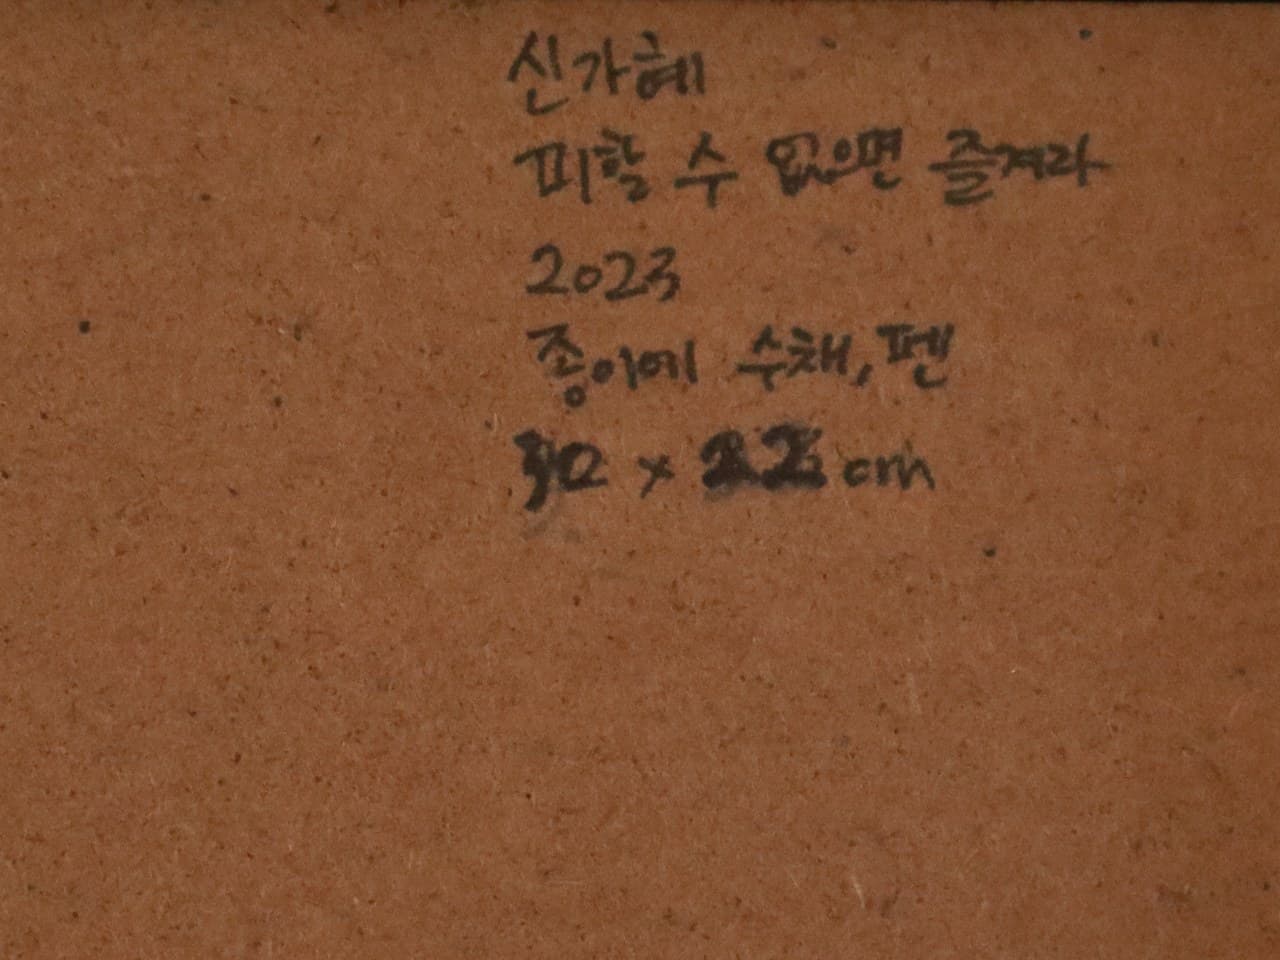 신가혜
피할 수 없으면 즐겨라
2023
종이에 수채, 펜
x 22 cm